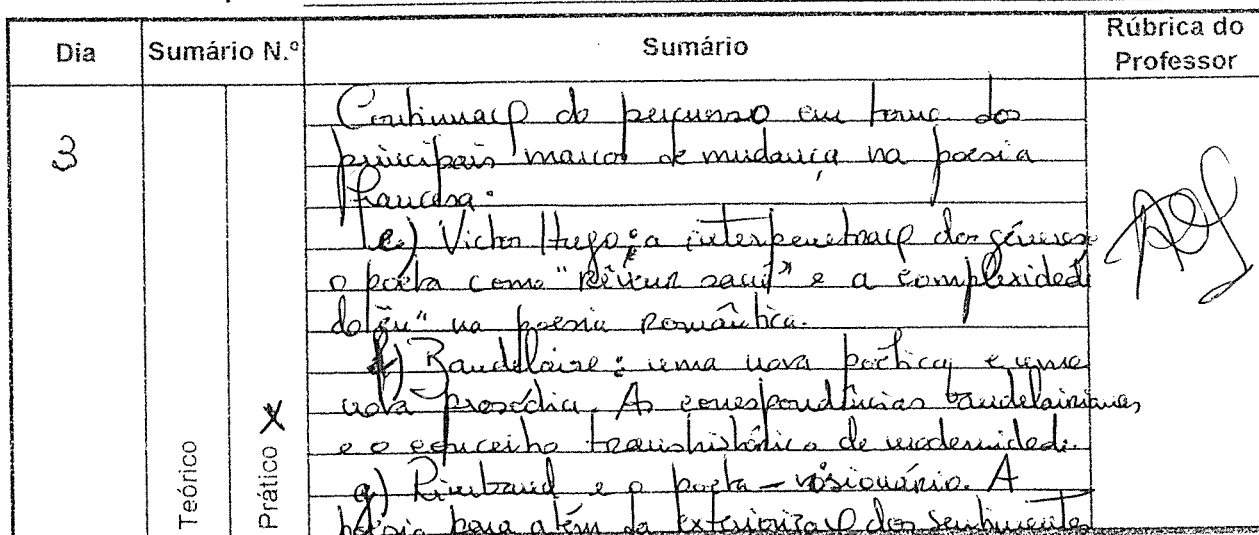 Dia Sumário N.º Sumário Rúbrica do Professor
3
Teórico
Prático X
Continuação do percurso em torno dos
principais marcos de mudança na poesia
francesa:
e) Victor Hugo: a interpenetração dos géneros
o poeta como "Rêveur sacré" e a complexidade
do "eu" na poesia Romântica.
f) Baudelaire: uma nova poética e uma
nova prosódia. As correspondências baudelairianas
e o conceito transhistórico de modernidade.
g) Rimbaud e o poeta-visionário. A
poesia para além da exteriorização dos sentimentos